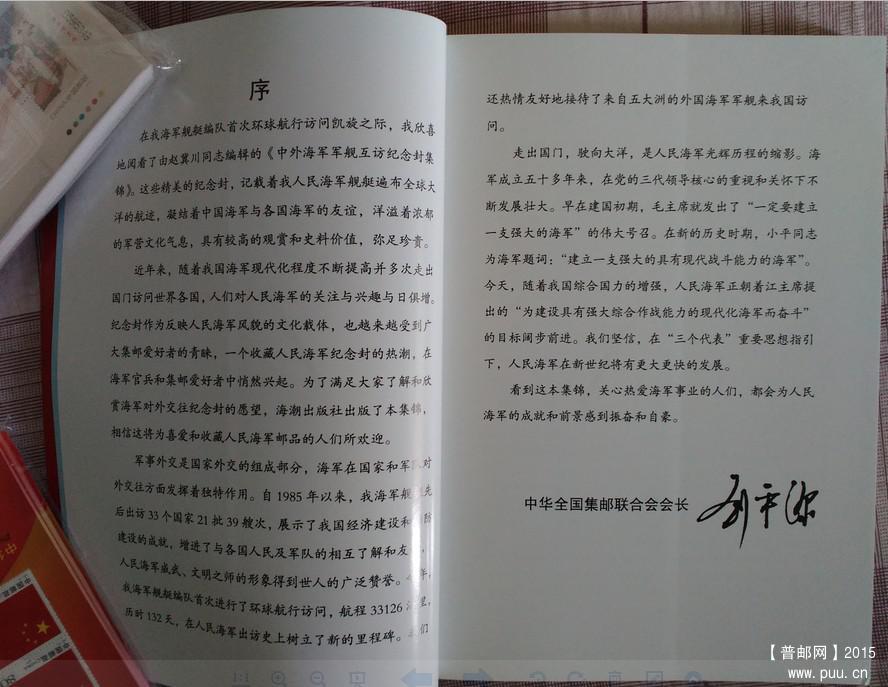 序
在我海军舰艇编队首次环球航行访问凯旋之际，我欣喜
地阅看了由赵冀川同志编辑的《中外海军军舰互访纪念封集
锦》。这些精美的纪念封，记载着我人民海军舰艇遍布全球大
洋的航迹，凝结着中国海军与各国海军的友谊，洋溢着浓郁
的军营文化气息，具有较高的观赏和史料价值，弥足珍贵。
近年来，随着我国海军现代化程度不断提高并多次走出
国门访问世界各国，人们对人民海军的关注与兴趣与日俱增。
纪念封作为反映人民海军风貌的文化载体，也越来越受到广
大集邮爱好者的青睐，一个收藏人民海军纪念封的热潮，在
海军官兵和集邮爱好者中悄然兴起。为了满足大家了解和欣
赏海军对外交往纪念封的愿望，海潮出版社出版了本集锦，
相信这将为喜爱和收藏人民海军邮品的人们所欢迎。
军事外交是国家外交的组成部分，海军在国家和军队对
外交往方面发挥着独特作用。自1985年以来，我海军舰艇先
后出访33个国家21批39艘次，展示了我国经济建设和国防
建设的成就，增进了与各国人民及军队的相互了解和友谊，
人民海军威武、文明之师的形象得到世人的广泛赞誉。今年，
我海军舰艇编队首次进行了环球航行访问，航程33126海里，
历时132天，在人民海军出访史上树立了新的里程碑。我们
还热情友好地接待了来自五大洲的外国海军军舰来我国访
问。
走出国门，驶向大洋，是人民海军光辉历程的缩影。海
军成立五十多年来，在党的三代领导核心的重视和关怀下不
断发展壮大。早在建国初期，毛主席就发出了“一定要建立
一支强大的海军”的伟大号召。在新的历史时期，小平同志
为海军题词：“建立一支强大的具有现代战斗能力的海军”。
今天，随着我国综合国力的增强，人民海军正朝着江主席提
出的“为建设具有强大综合作战能力的现代化海军而奋斗”
的目标阔步前进。我们坚信，在“三个代表”重要思想指引
下，人民海军在新世纪将有更大更快的发展。
看到这本集锦，关心热爱海军事业的人们，都会为人民
海军的成就和前景感到振奋和自豪。
中华全国集邮联合会会长 刘平源
【普邮网】2015
www.puu.cn